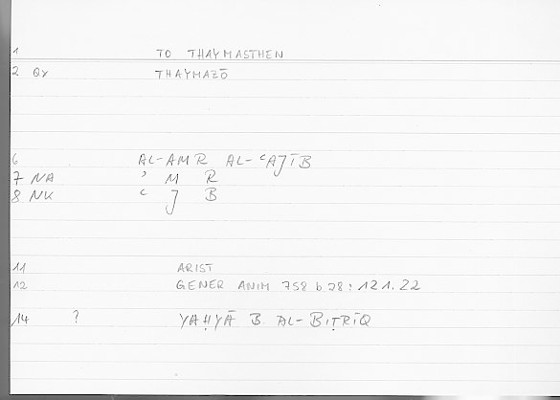 1 TO THAYMASTHEN
2 GV THAYMAZŌ
6 AL-AMR AL-ʿAJĪB
7 NA ʾ M R
8 NK ʿ J B
11 ARIST
12 GENER ANIM 758 b 28; 121.22
14 ? YAḤYĀ B AL-BIṬRĪQ